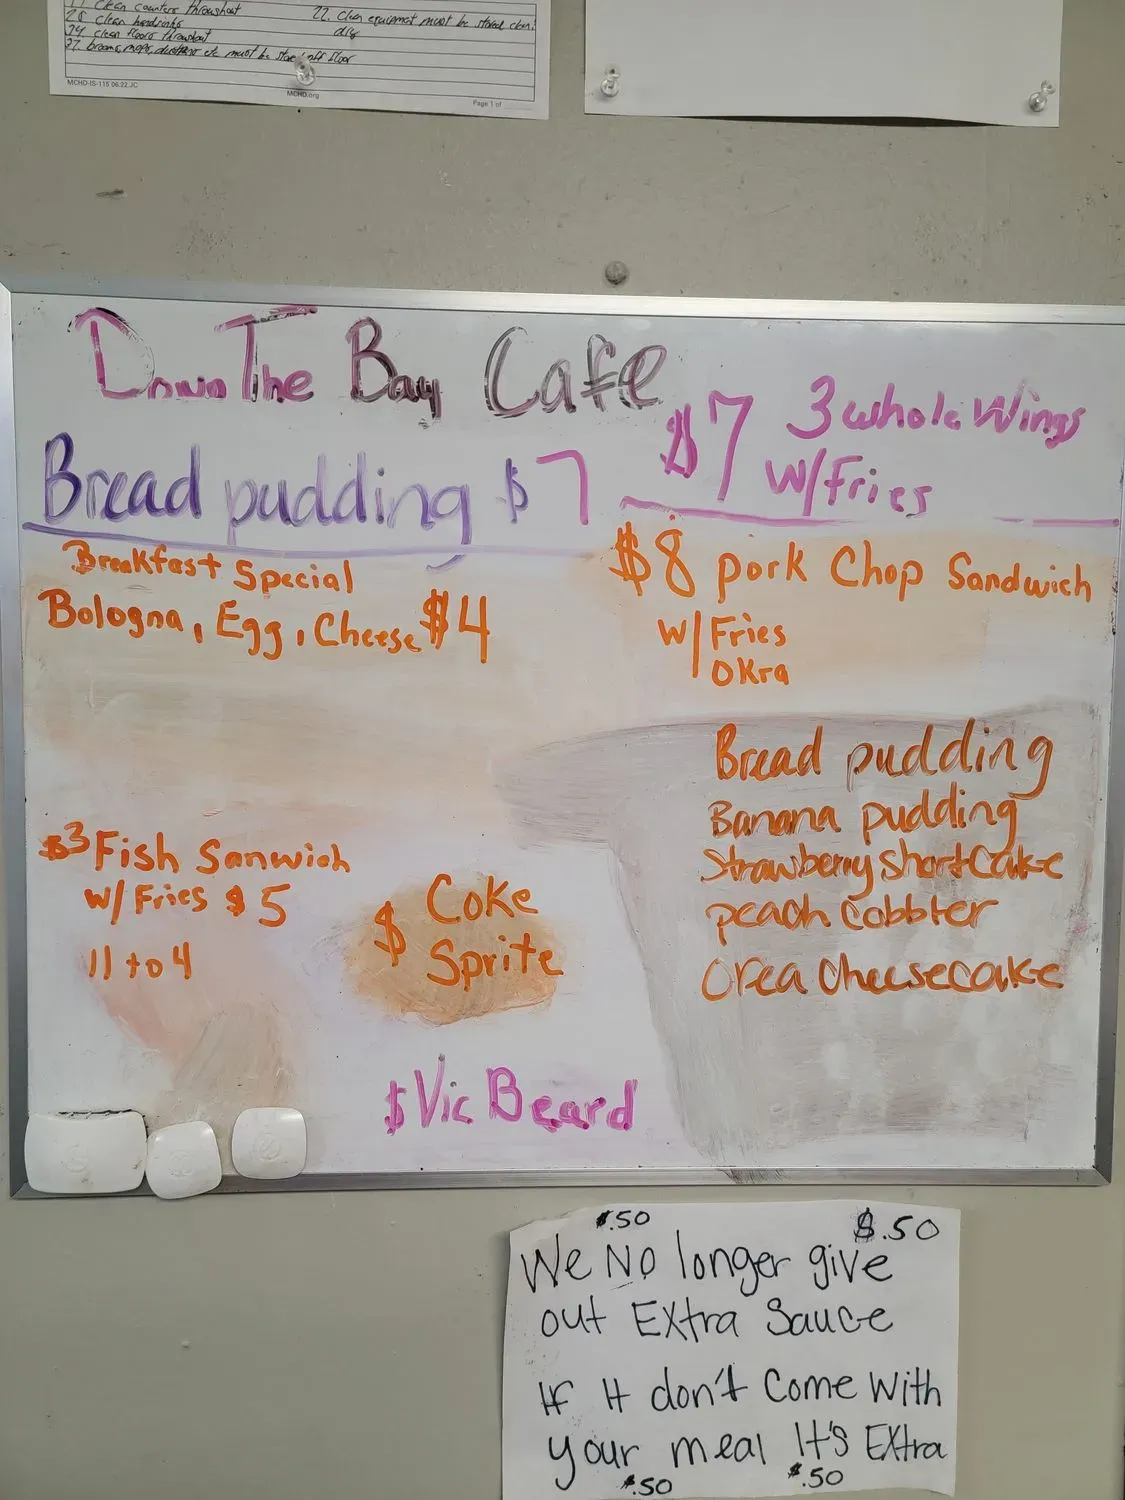 clean counters throughout
clean handsinks
clean floors throughout
27. brooms, mops, etc must be off floor
22. clean equipment must be stored clean!
dry
MCHD-IS-115 06.22.JC
MCHD.org
Page 1 of
Down The Bay Cafe
Bread pudding $7
$7 3 whole Wings
W/Fries
Breakfast Special
Bologna, Egg, Cheese $4
$8 pork Chop Sandwich
W/Fries
OKra
Bread pudding
Banana pudding
Strawberry shortCake
peach Cobbler
Orea Cheesecake
$3 Fish Sanwich
w/ Fries $5
11 to 4
$ Coke
Sprite
$Vic Beard
$.50 $.50
We No longer give
out Extra Sauce
If It don't Come With
your meal It's Extra
$.50 $.50